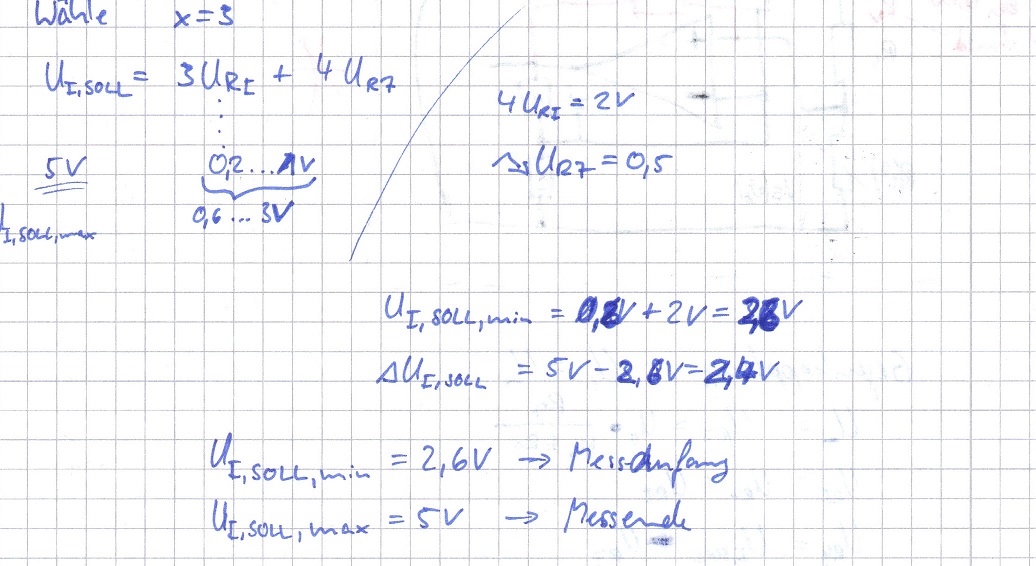 Wähle x=3
U_I,SOLL = 3U_RI + 4U_R7
5V 0,2...1V
0,6...3V
I,SOLL,max
4U_RI = 2V
U_R7 = 0,5
U_I,SOLL,min = 0,6V + 2V = 2,6V
ΔU_I,SOLL = 5V - 2,6V = 2,4V
U_I,SOLL,min = 2,6V → Messanfang
U_I,SOLL,max = 5V → Messende